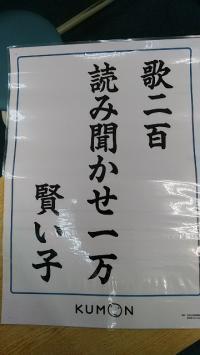 歌二百
読み聞かせ一万
賢い子
KUMON